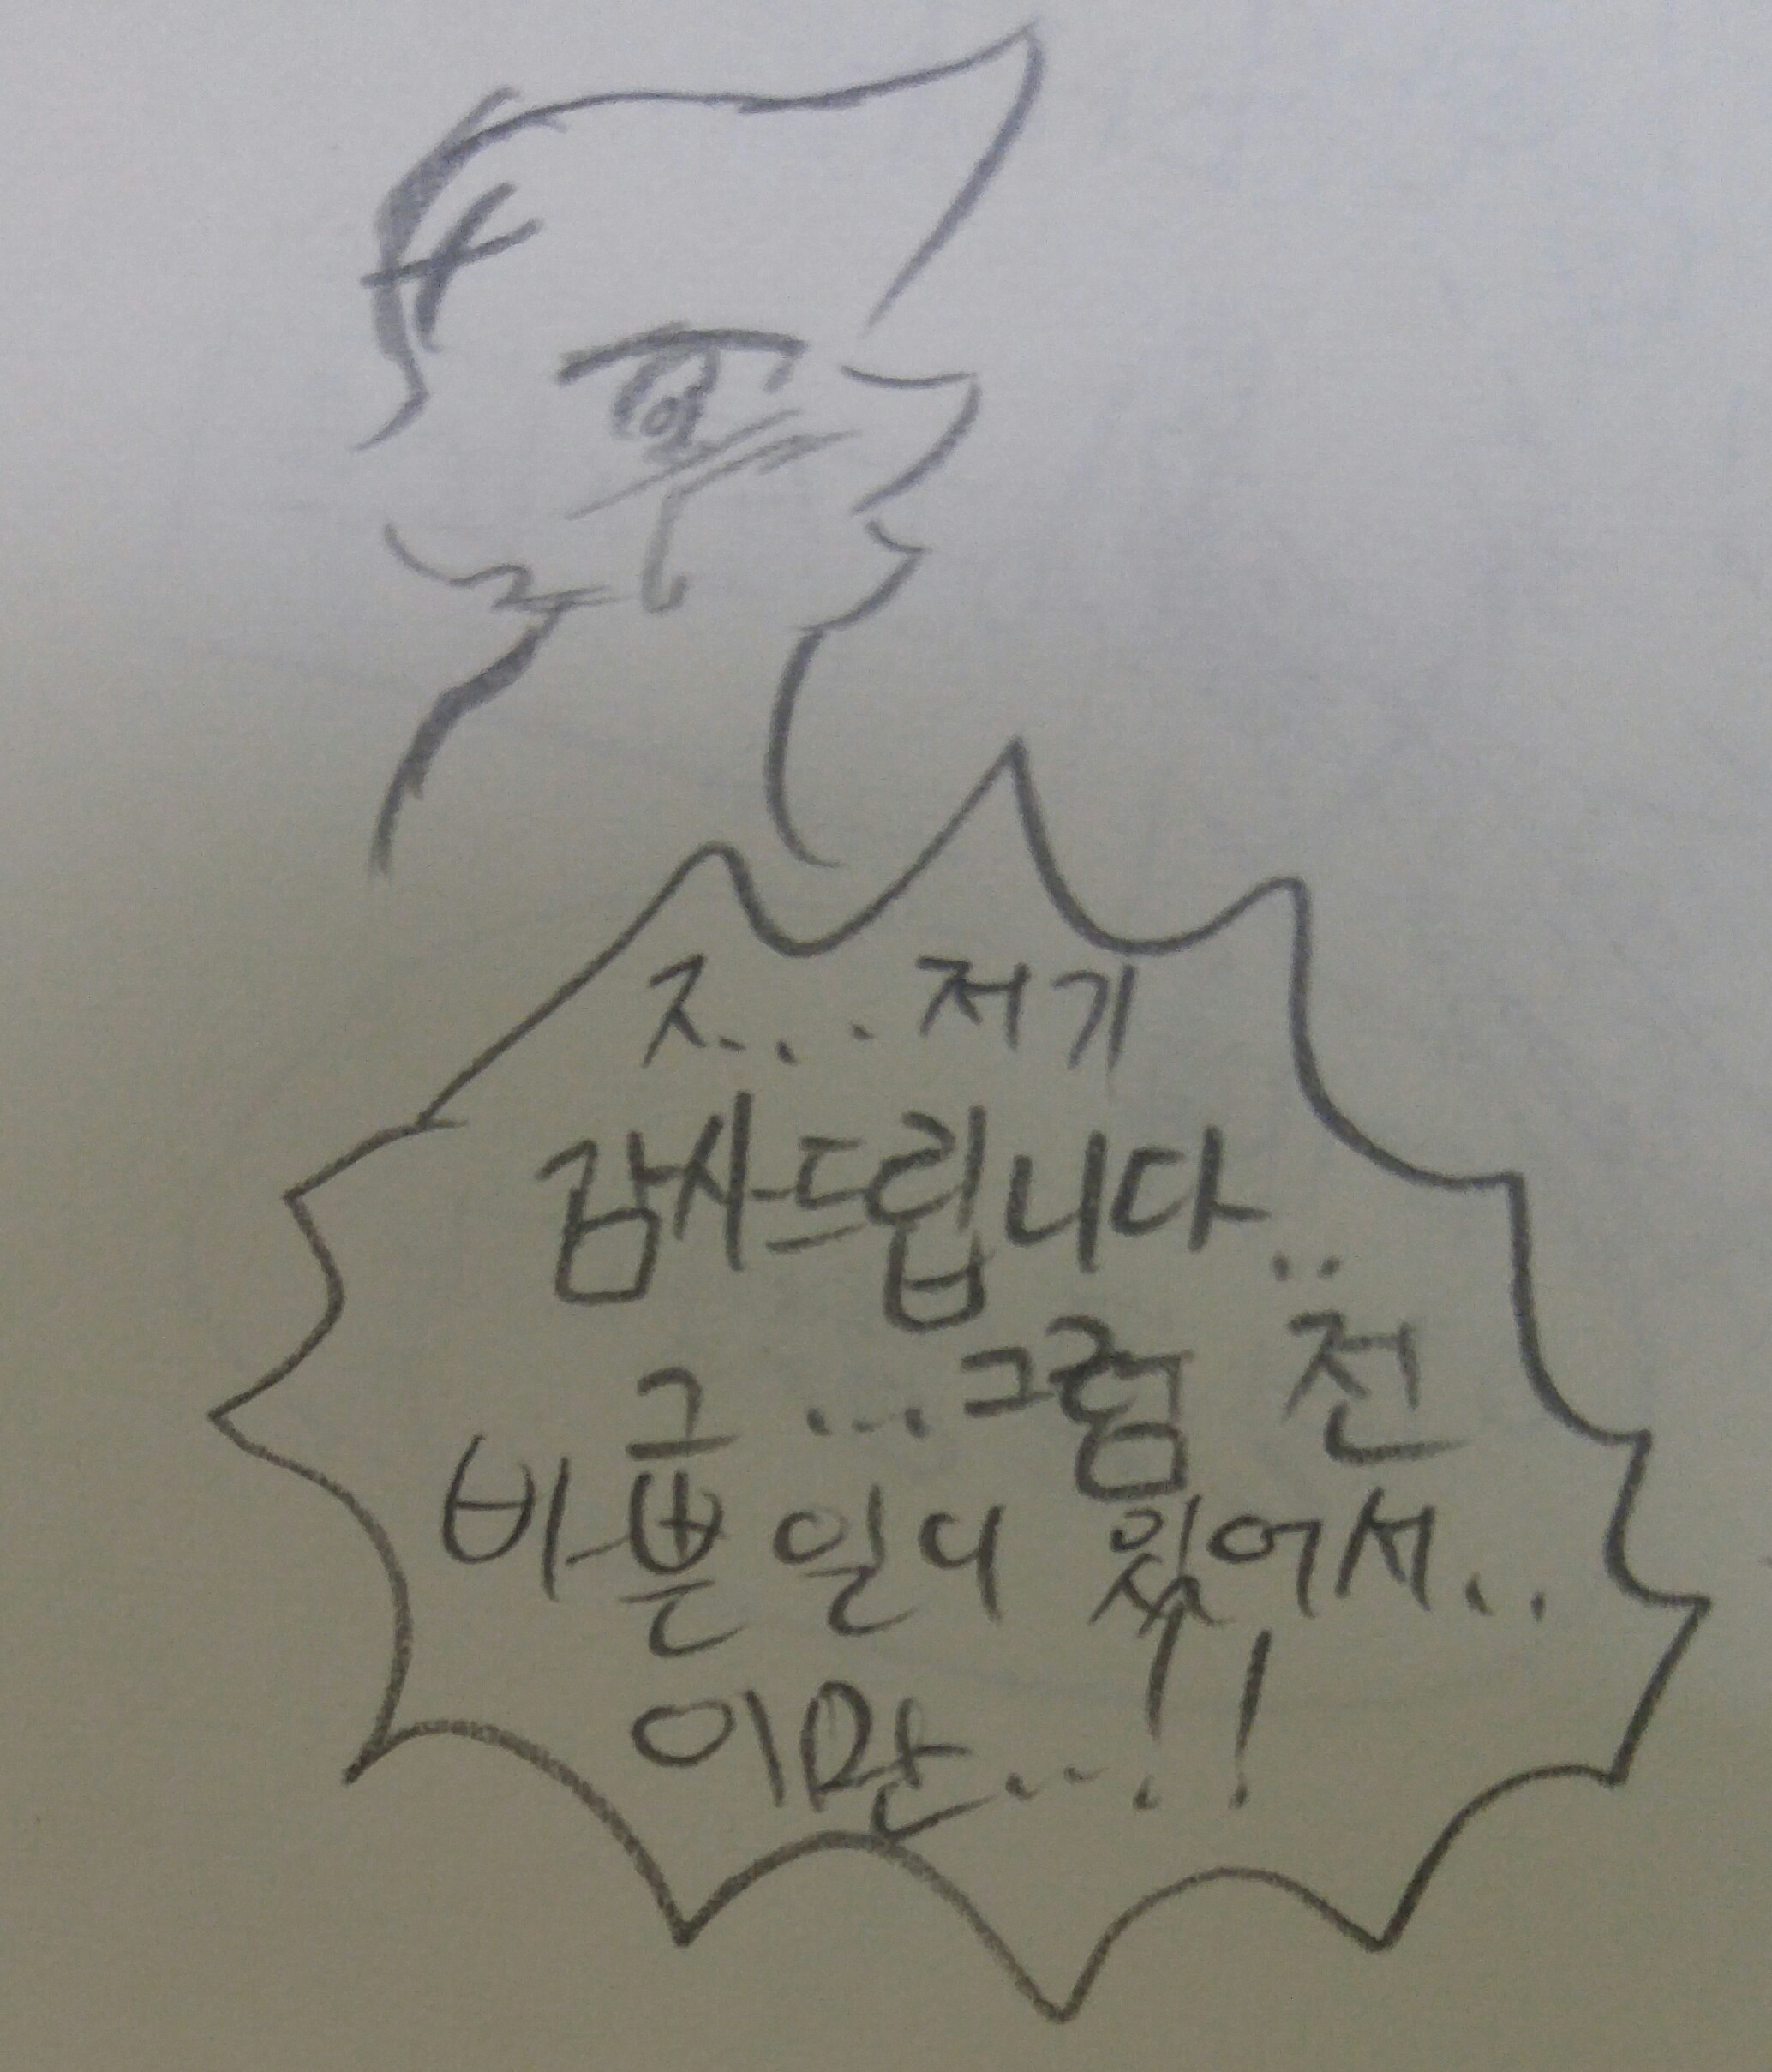 ㅈ... 저기
감사드립니다..
그...그럼 전
바쁜 일이 있어서..
이만...!!